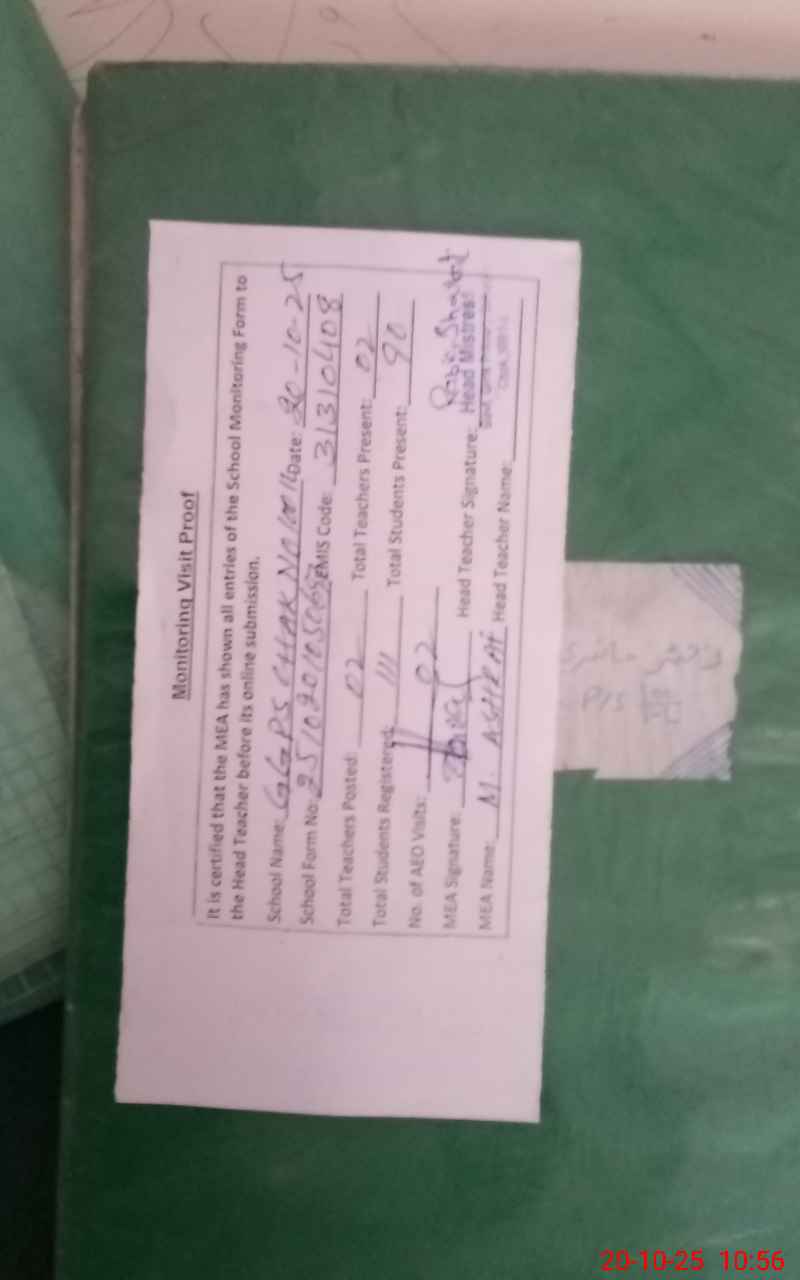 Monitoring Visit Proof
It is certified that the MEA has shown all entries of the School Monitoring Form to
the Head Teacher before its online submission.
School Name: GGPS CHAK NO Date: 20-10-25
School Form No: EMIS Code: 31310408
Total Teachers Posted: 02 Total Teachers Present: 02
Total Students Registered: 111 Total Students Present: 90
No. of AEO Visits: 02
MEA Signature: Head Teacher Signature:
Head Mistress
MEA Name: M. ASHRAF Head Teacher Name:
20-10-25 10:56